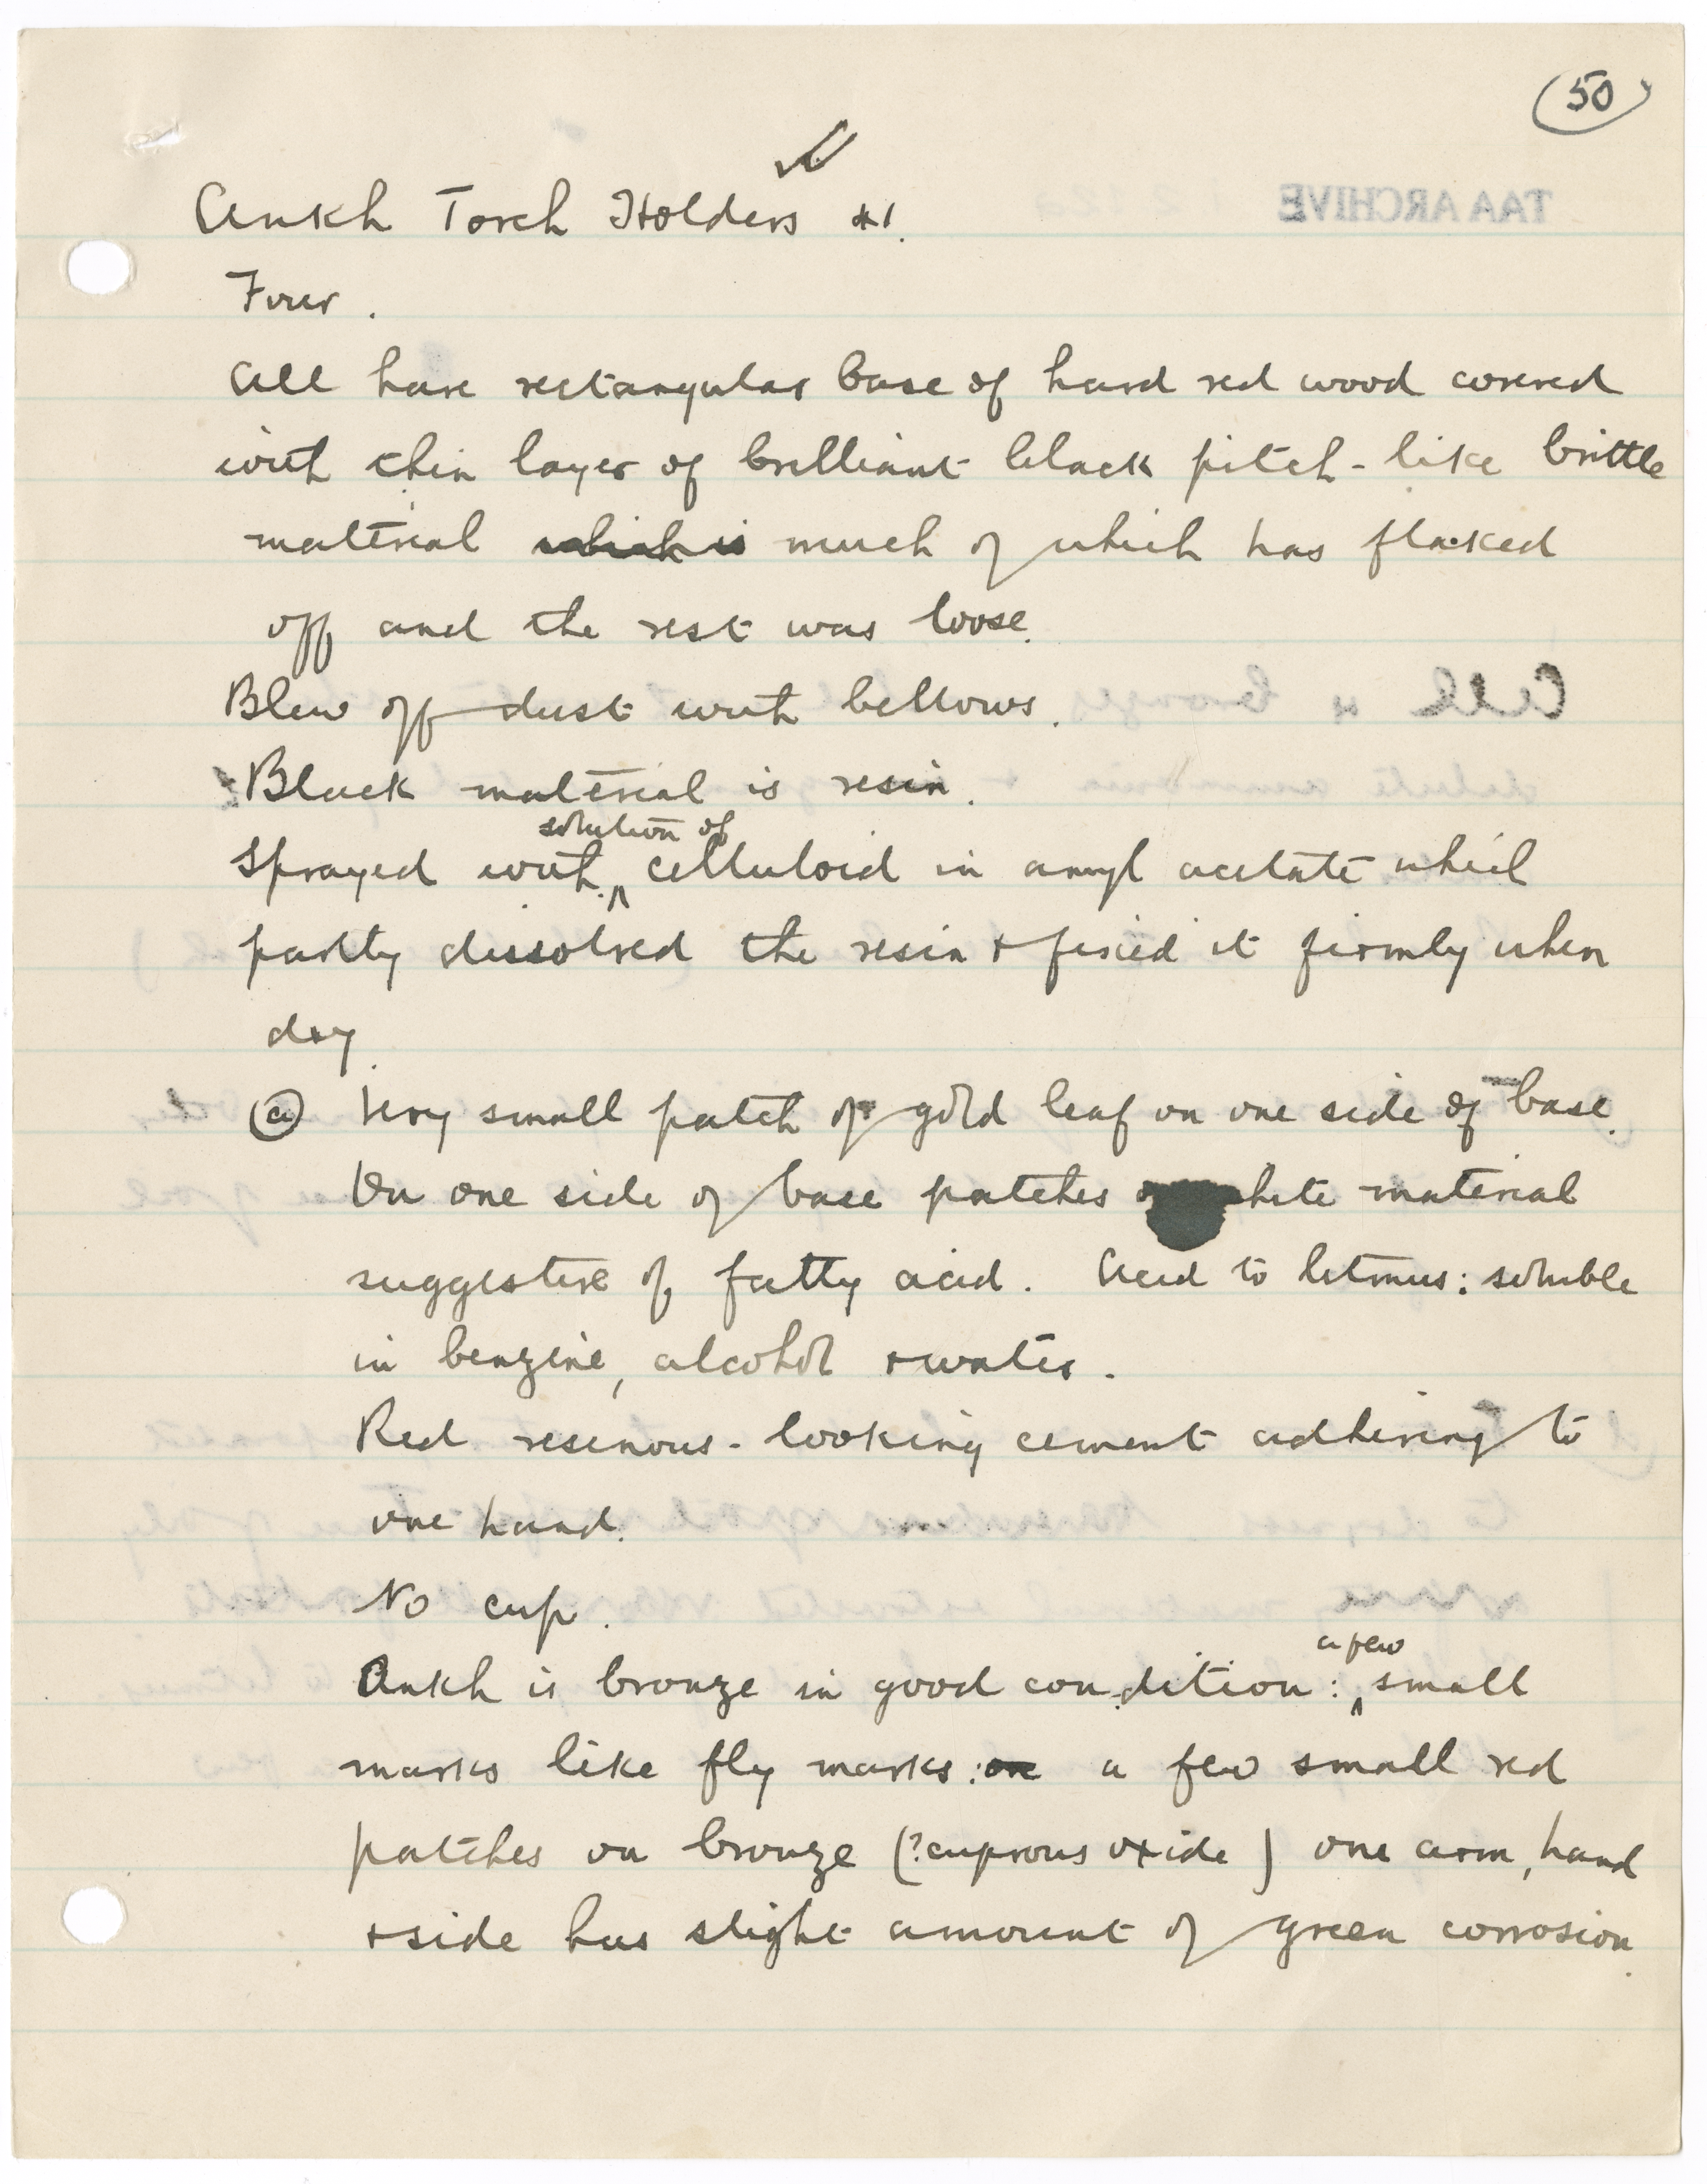 50
Ankh Torch Holders *1.
Four.
All have rectangular base of hard red wood covered
with thin layer of brilliant black pitch-like brittle
material which is much of which has flaked
off and the rest was loose.
Blew off dust with bellows.
Black material is resin.
solution of
Sprayed with ^ celluloid in amyl acetate which
partly dissolved the resin + fixed it firmly when
dry.
(a) Very small patch of gold leaf on one side of base.
On one side of base patches of white material
suggestive of fatty acid. Acid to litmus: soluble
in benzine, alcohol + water.
Red resinous-looking cement adhering to
one hand.
No cup.
a few
Ankh is bronze in good condition: ^ small
marks like fly marks: a few small red
patches on bronze (?cuprous oxide) one arm, hand
+ side has slight amount of green corrosion.
TAA ARCHIVE